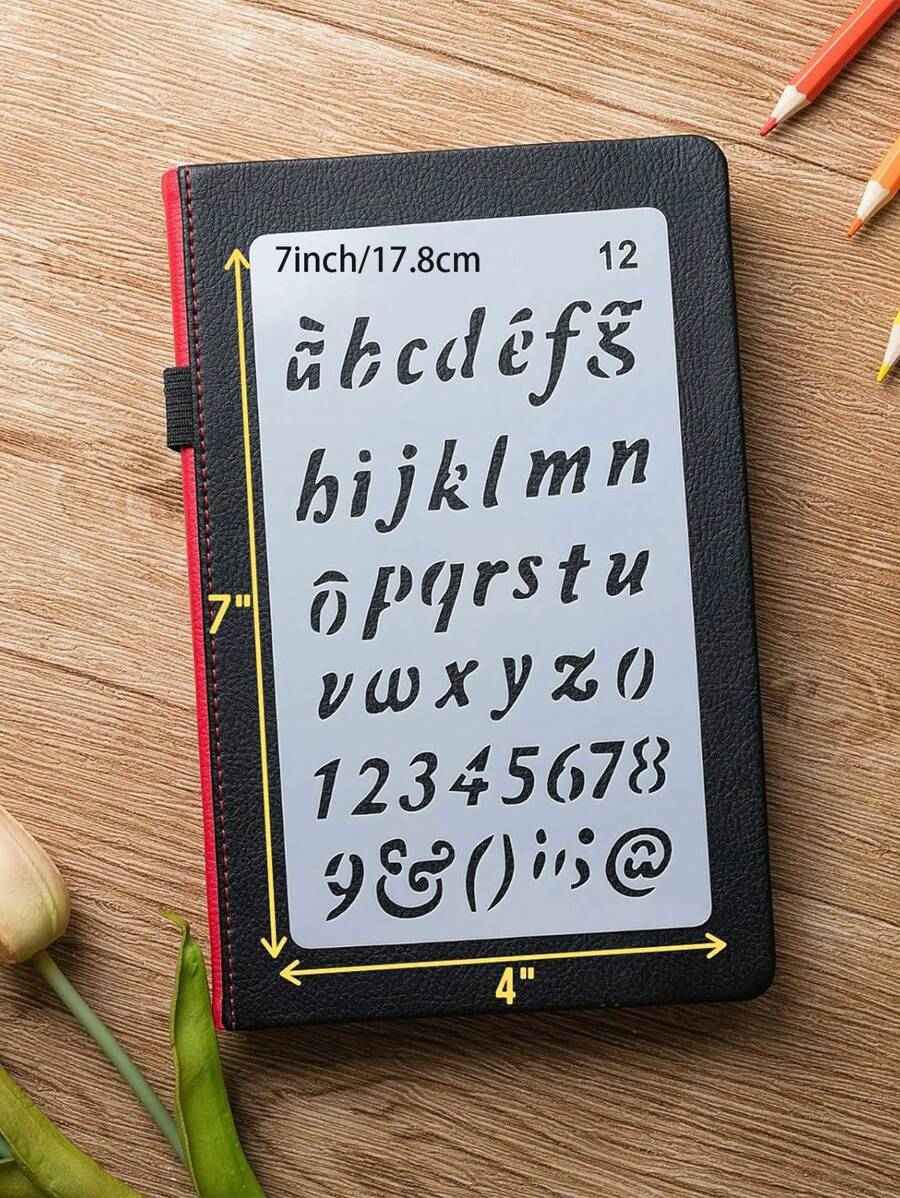 7inch/17.8cm 12
àbcdéfğ
hijklmn
ôpqrstu
vwxyz0
12345678
9&()¡!,;@
7"
4"